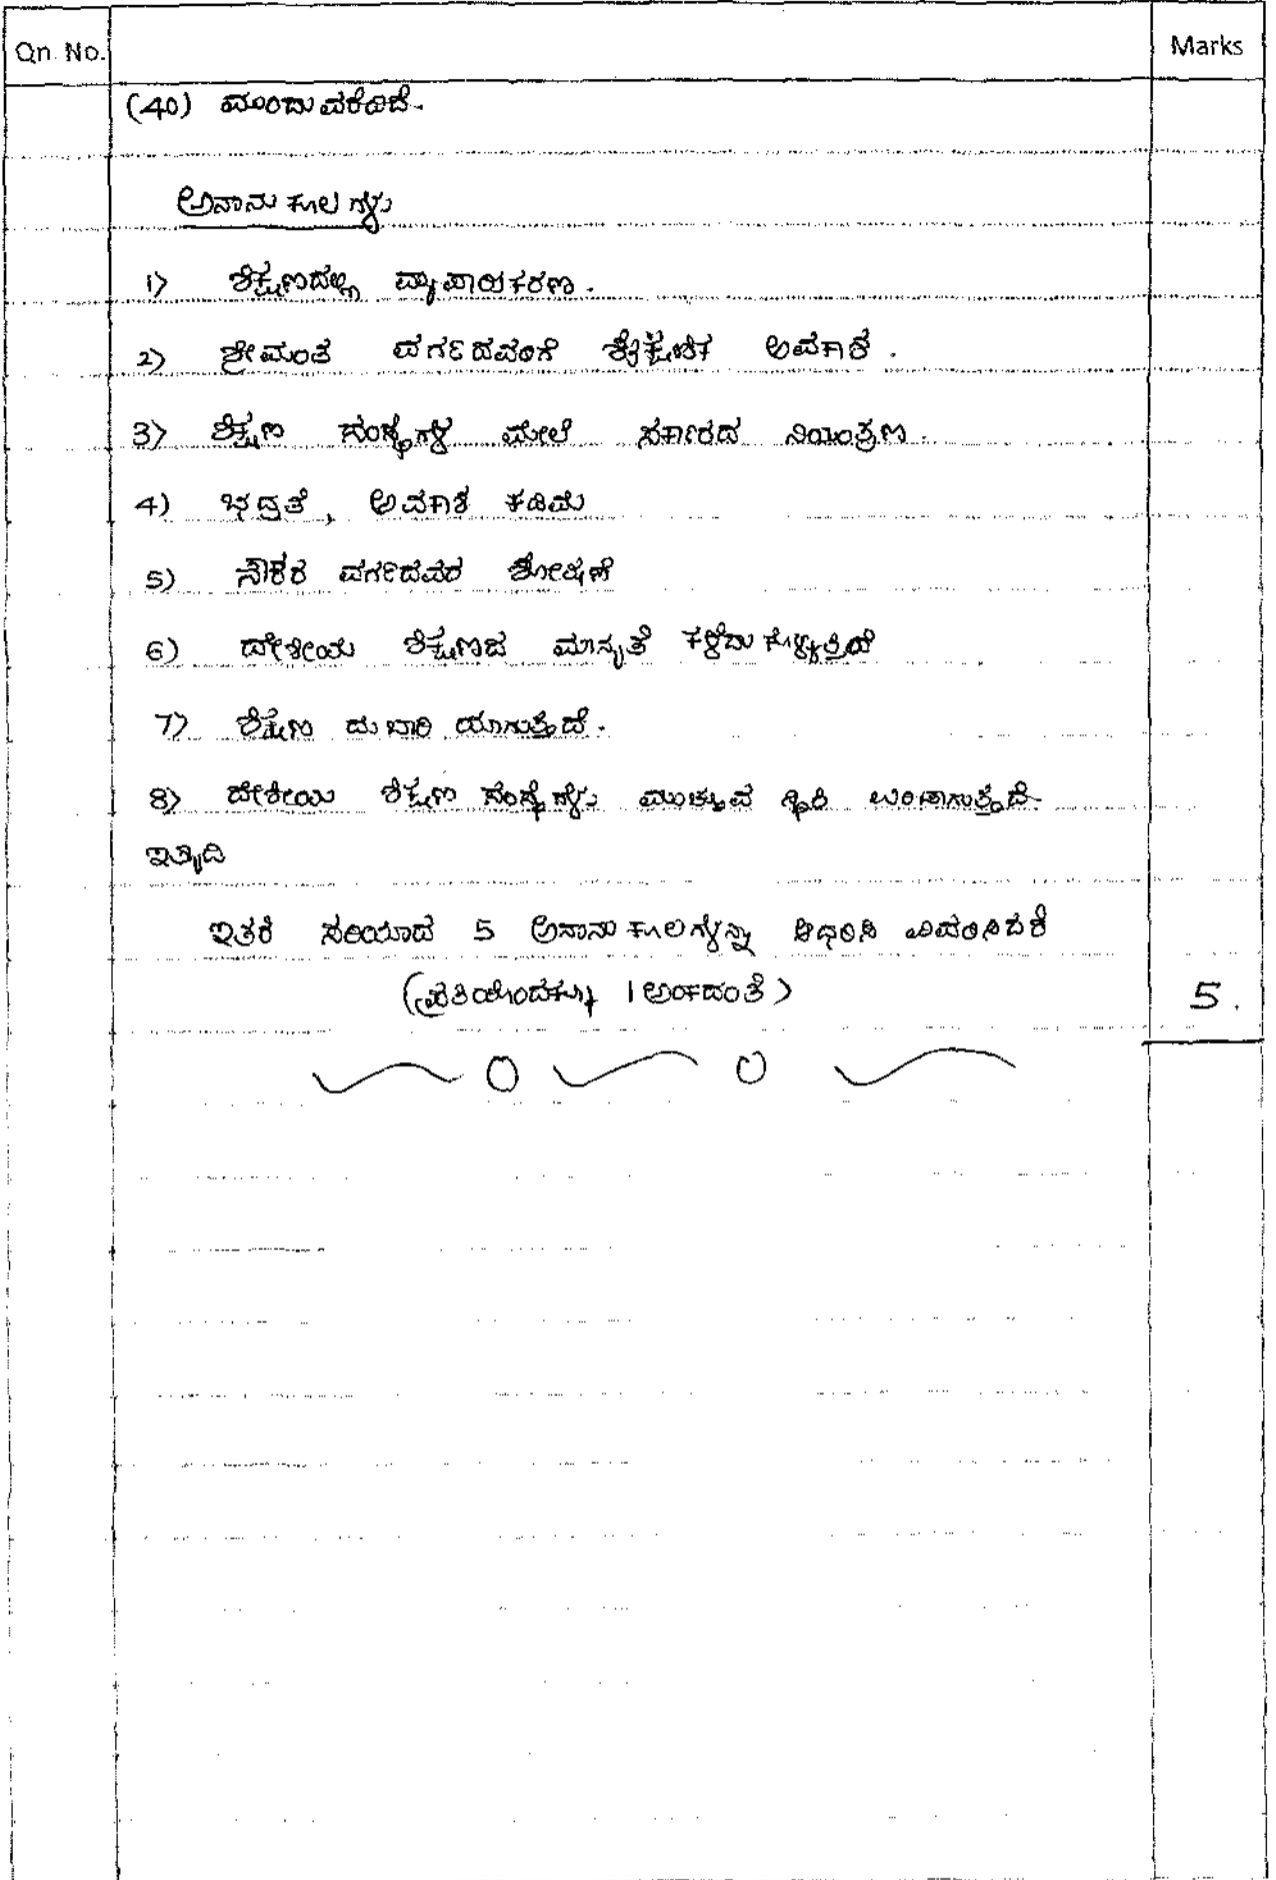 Qn. No. Marks
(40) ಮುಂದುವರೆದಿದೆ.
ಅನಾನುಕೂಲಗಳು
1) ಶಿಕ್ಷಣದಲ್ಲಿ ವ್ಯಾಪಾರೀಕರಣ.
2) ಶ್ರೀಮಂತ ವರ್ಗದವರಿಗೆ ಶೈಕ್ಷಣಿಕ ಅವಕಾಶ.
3) ಶಿಕ್ಷಣ ಸಂಸ್ಥೆಗಳ ಮೇಲೆ ಸರ್ಕಾರದ ನಿಯಂತ್ರಣ.
4) ಭದ್ರತೆ, ಅವಕಾಶ ಕಡಿಮೆ
5) ನೌಕರ ವರ್ಗದವರ ಶೋಷಣೆ
6) ದೇಶೀಯ ಶಿಕ್ಷಣದ ಮಾನ್ಯತೆ ಕಳೆದುಕೊಳ್ಳುತ್ತಿದೆ
7) ಶಿಕ್ಷಣ ದುಬಾರಿಯಾಗುತ್ತದೆ.
8) ದೇಶೀಯ ಶಿಕ್ಷಣ ಸಂಸ್ಥೆಗಳು ಮುಚ್ಚುವ ಸ್ಥಿತಿ ಉಂಟಾಗುತ್ತದೆ.
ಇತ್ಯಾದಿ
ಇತರೆ ಸರಿಯಾದ 5 ಅನಾನುಕೂಲಗಳನ್ನು ಆಧರಿಸಿ ವಿವರಿಸಿದರೆ
(ಪ್ರತಿಯೊಂದಕ್ಕೂ 1 ಅಂಕದಂತೆ) 5.